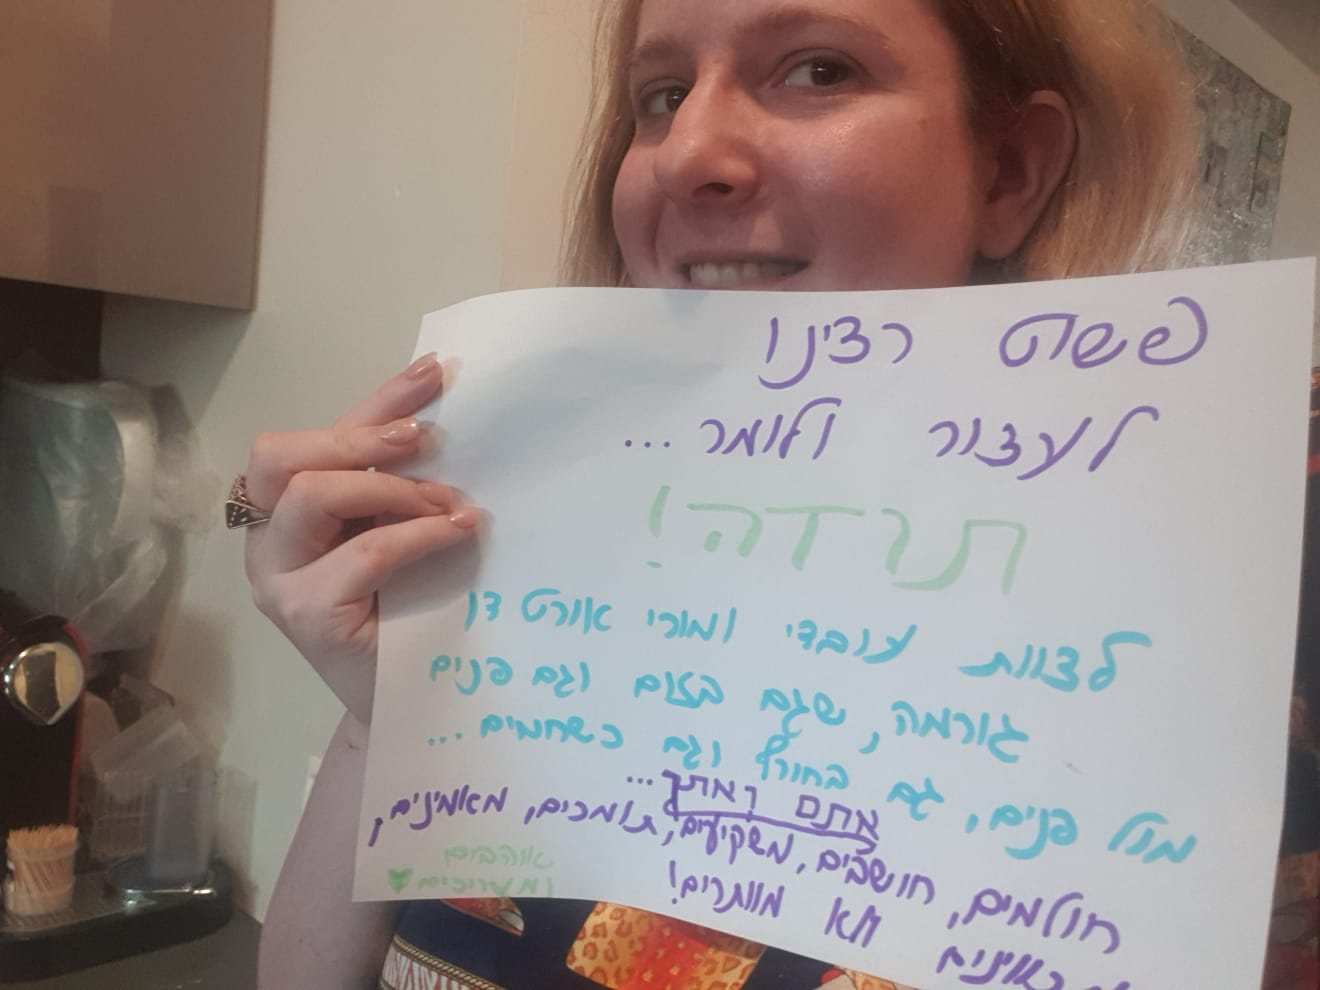 פשוט רצינו
לעצור ולומר...
תודה!
לצוות עובדי ומורי אורט דן
גורמה, שגם בזום וגם פנים
מול פנים, גם בחורף וגם כשחמים...
אתם
חולמים, חושבים, משקיעים, תומכים, מאמינים,
לא מוותרים!
אוהבים
ומעריכים